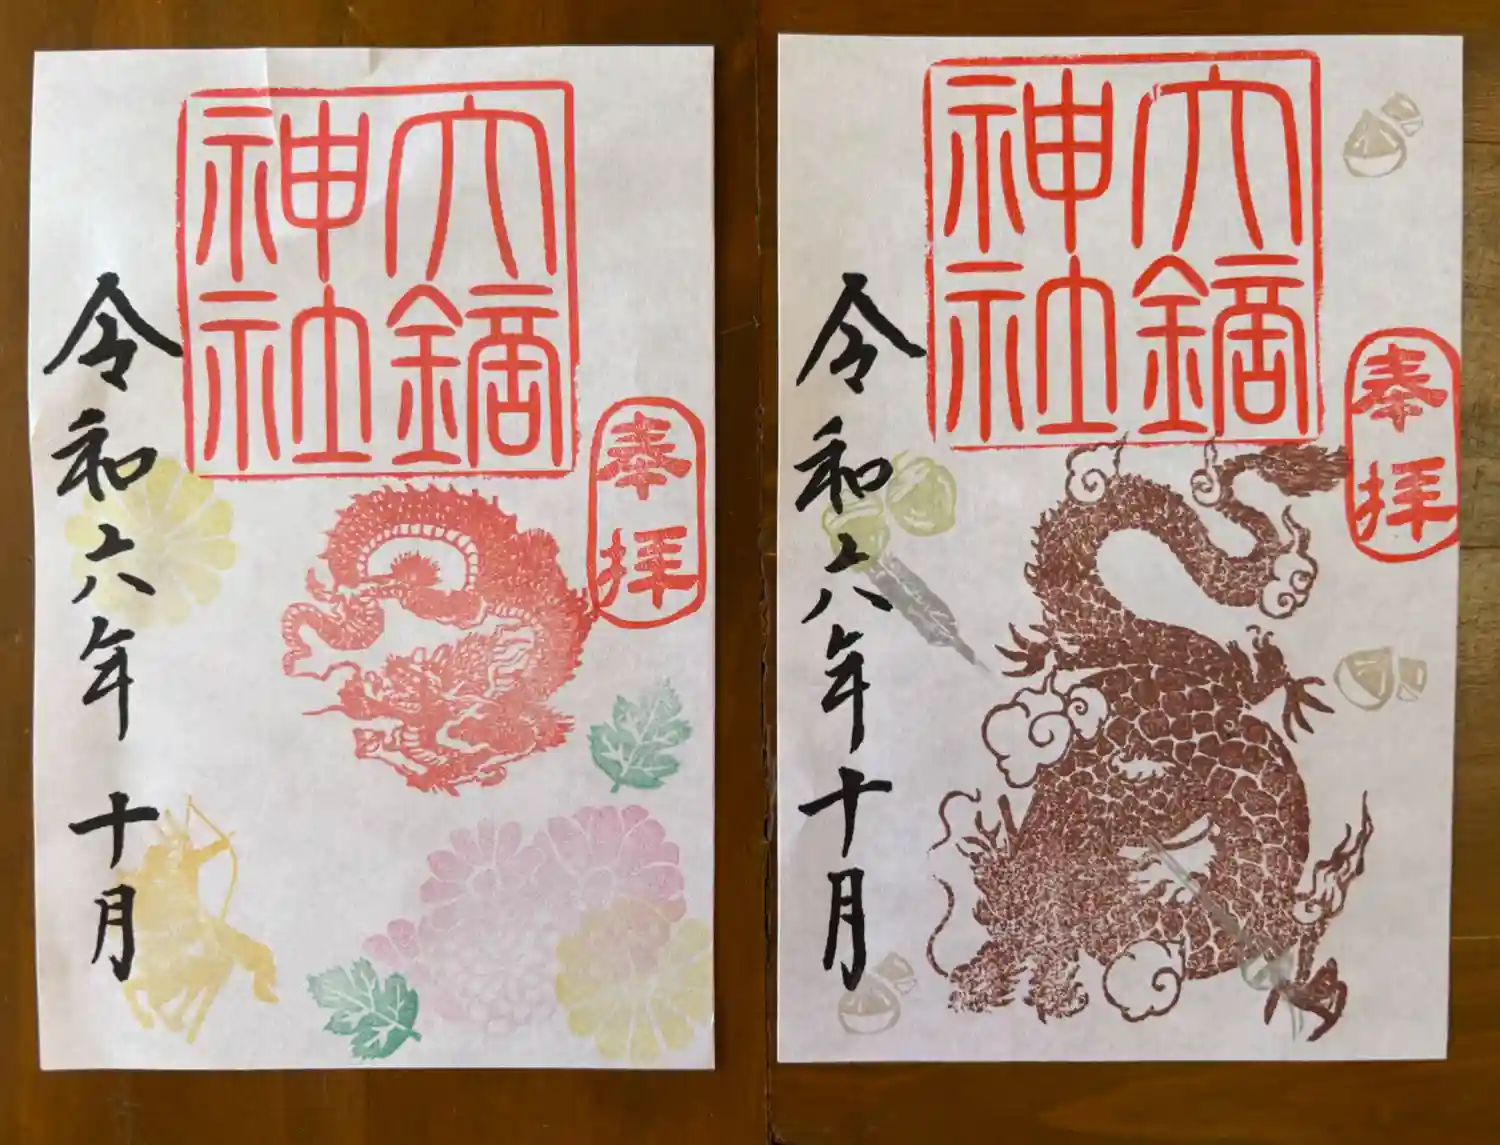 六鏑
神社
奉拝
令和六年 十月
六鏑
神社
奉拝
令和六年十月